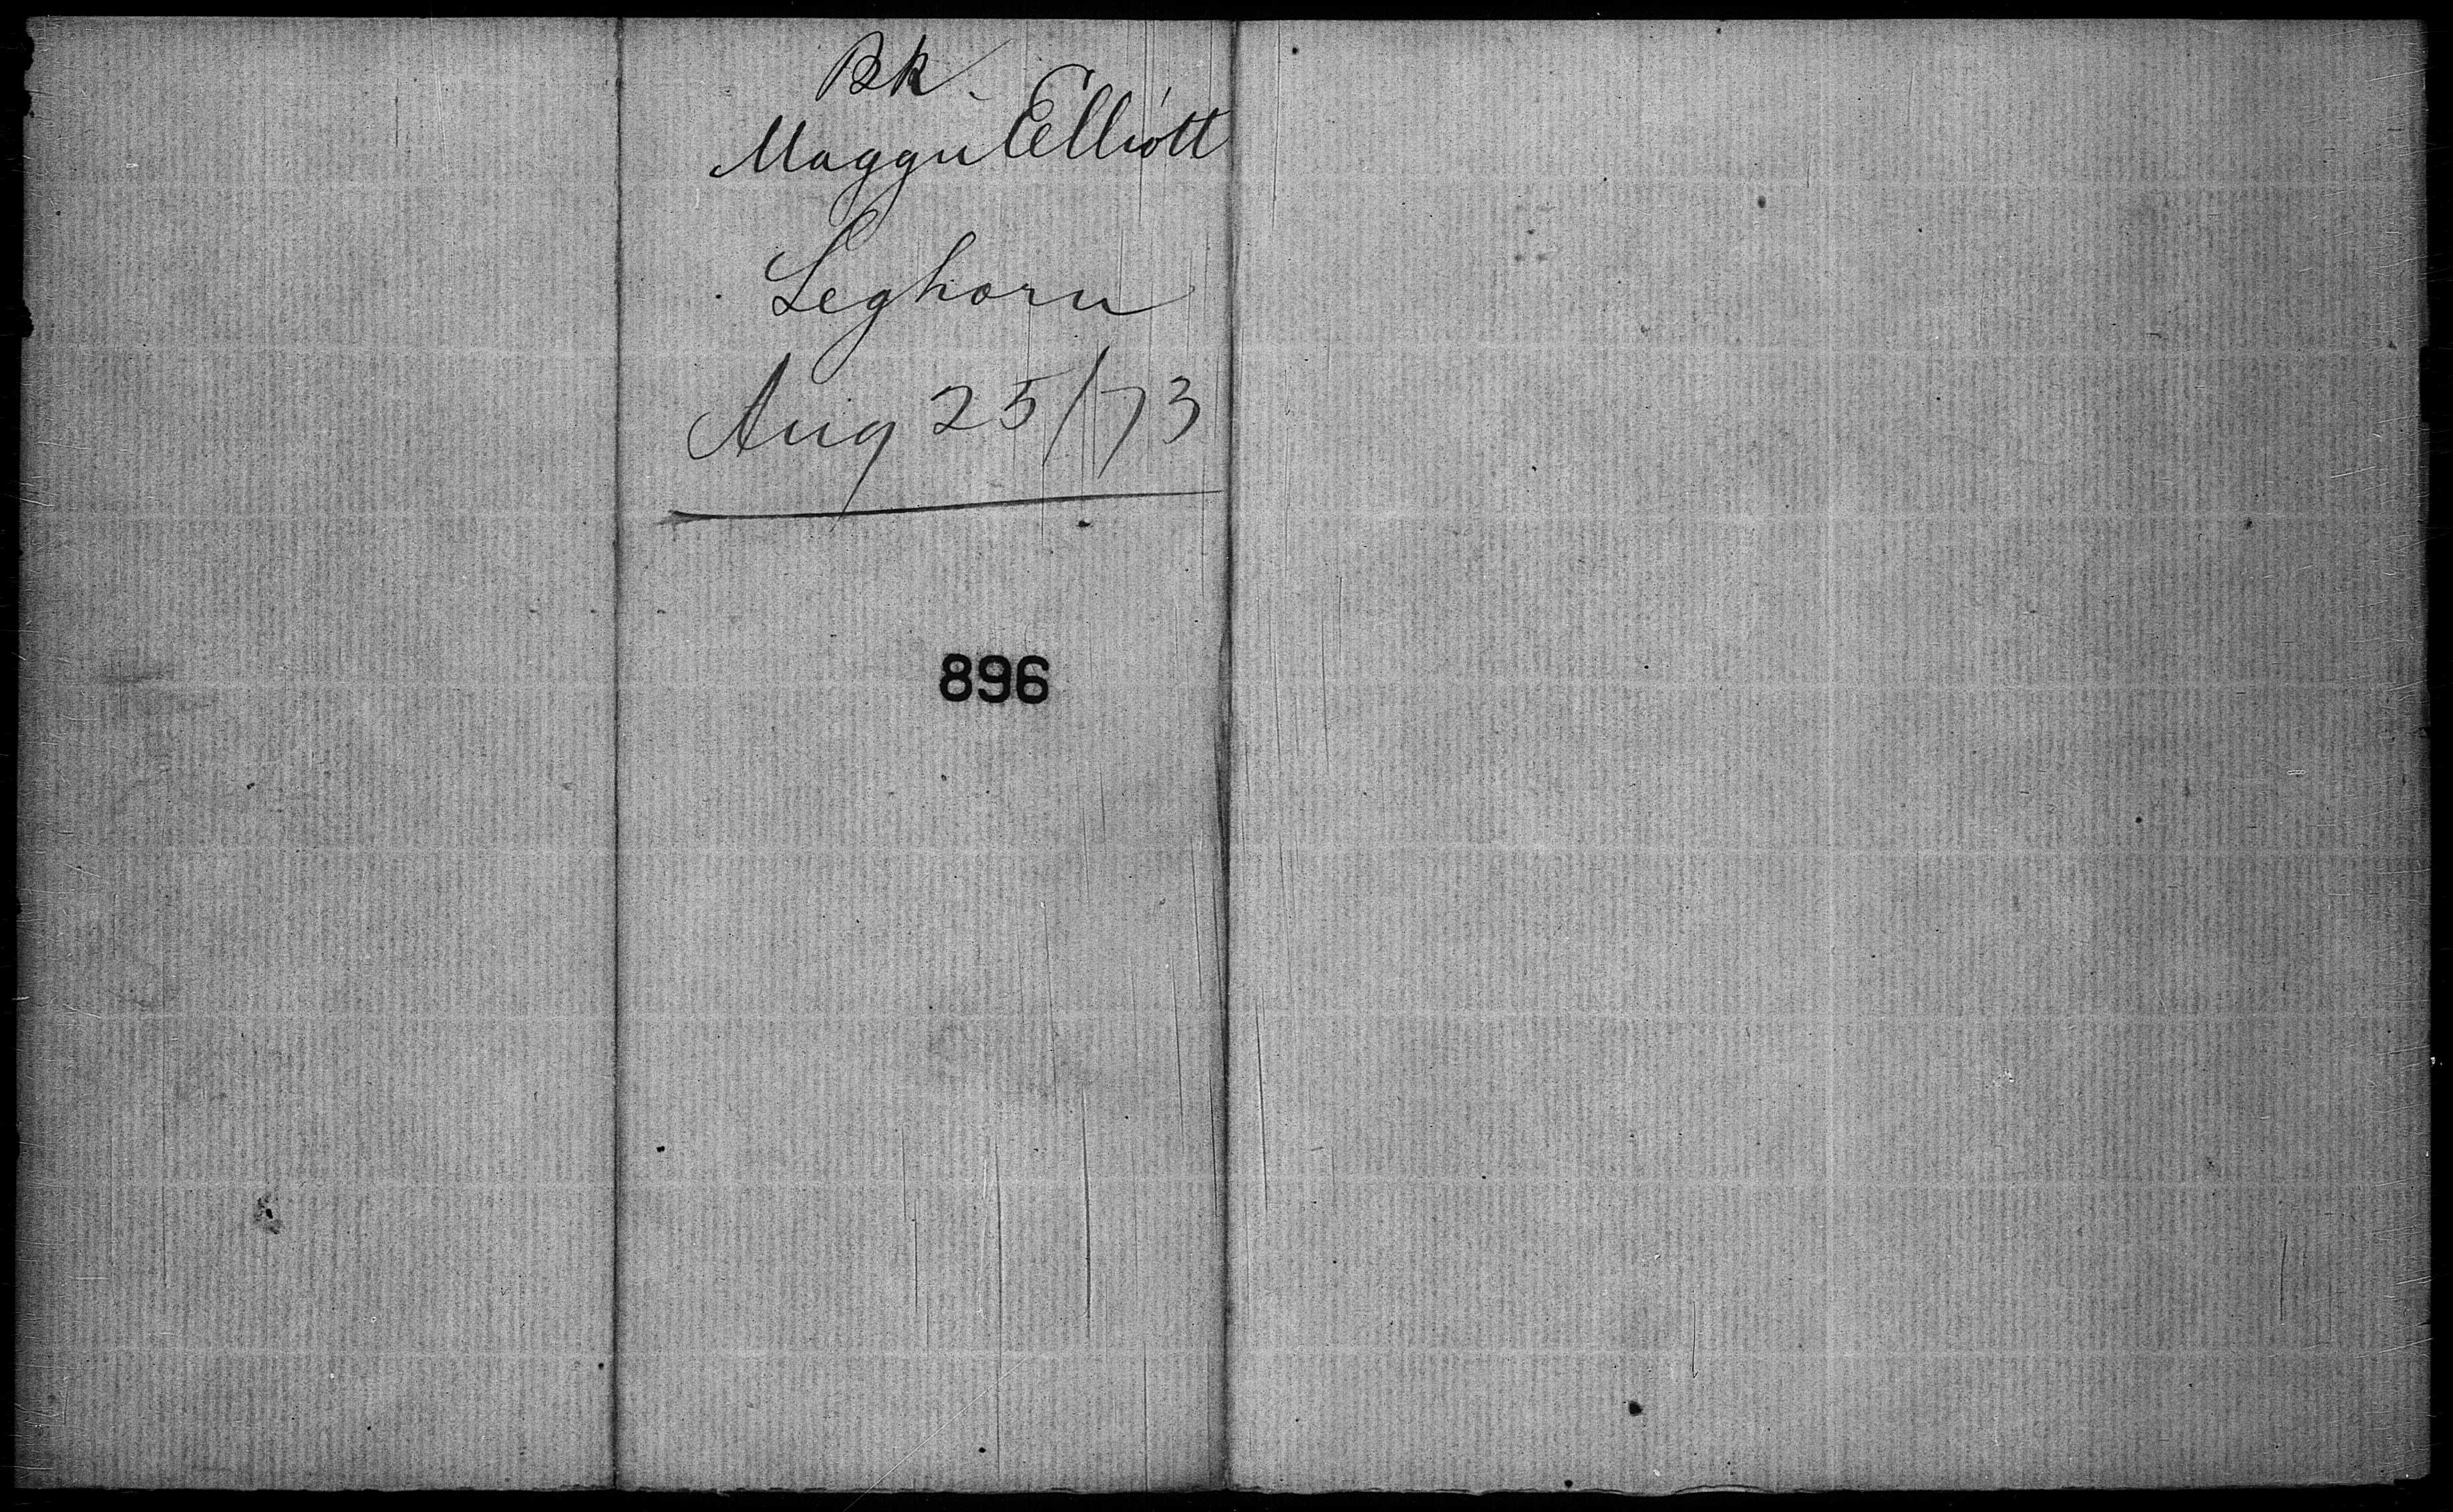 Bk.
Maggie Elliott
Leghorn
Aug 25/73
896